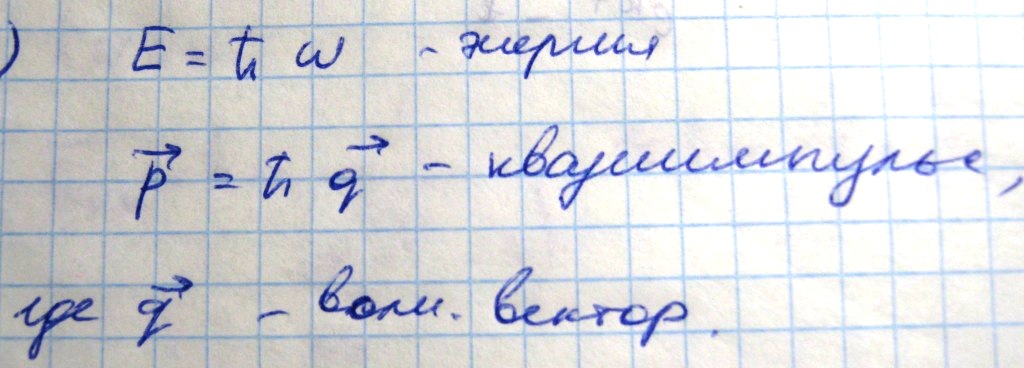 ) E = ħ ω - энергия
p⃗ = ħ q⃗ - квазиимпульс,
где q⃗ - волн. вектор.